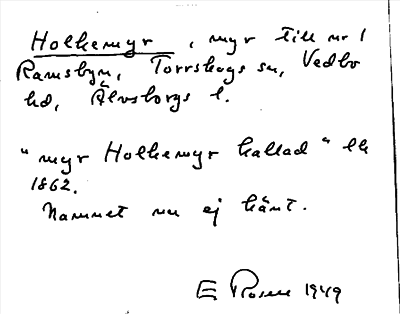 Holkemyr, myr till nr 1
Ramsbyn, Torrskogs sn, Vedbo
hd, Älvsborgs l.
"myr Holkemyr kallad" lh
1862.
Namnet nu ej känt.
E Rosell 1949